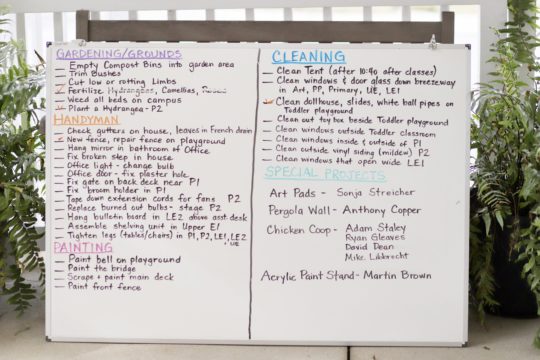 GARDENING/GROUNDS
Empty Compost Bins into garden area
Trim Bushes
Cut low or rotting Limbs
Fertilize Hydrangeas, Camellias,
Weed all beds on campus
Plant a Hydrangea - P2
HANDYMAN
Check gutters on house, leaves in French drain
New fence, repair fence on playground
Hang mirror in bathroom of Office
Fix broken step in house
Office light - change bulb
Office door - fix plaster hole
Fix gate on back deck near P1
Fix broom holder in P1
Tape down extension cords for fans P2
Replace burned out bulbs - stage P2
Hang bulletin board in LE2 above asst. desk
Assemble shelving unit in Upper E1
Tighten legs (tables/chairs) in P1, P2, LE1, LE2
UE
PAINTING
Paint bell on playground
Paint the bridge
Scrape + paint main deck
Paint front fence
CLEANING
Clean Tent (after after classes)
Clean windows & door glass down breezeway
in Art, PP, Primary, UE, LE1
Clean dollhouse, slides, white ball pipes on
Toddler playground
Clean out toy box beside Toddler playground
Clean windows outside Toddler classroom
Clean windows inside & outside of P1
Clean outside vinyl siding (mildew) P2
Clean windows that open wide LE1
SPECIAL PROJECTS
Art Pads - Sonja Streicher
Pergola Wall - Anthony Copper
Chicken Coop - Adam Staley
Ryan Gleaves
David Dean
Mike
Acrylic Paint Stand - Martin Brown